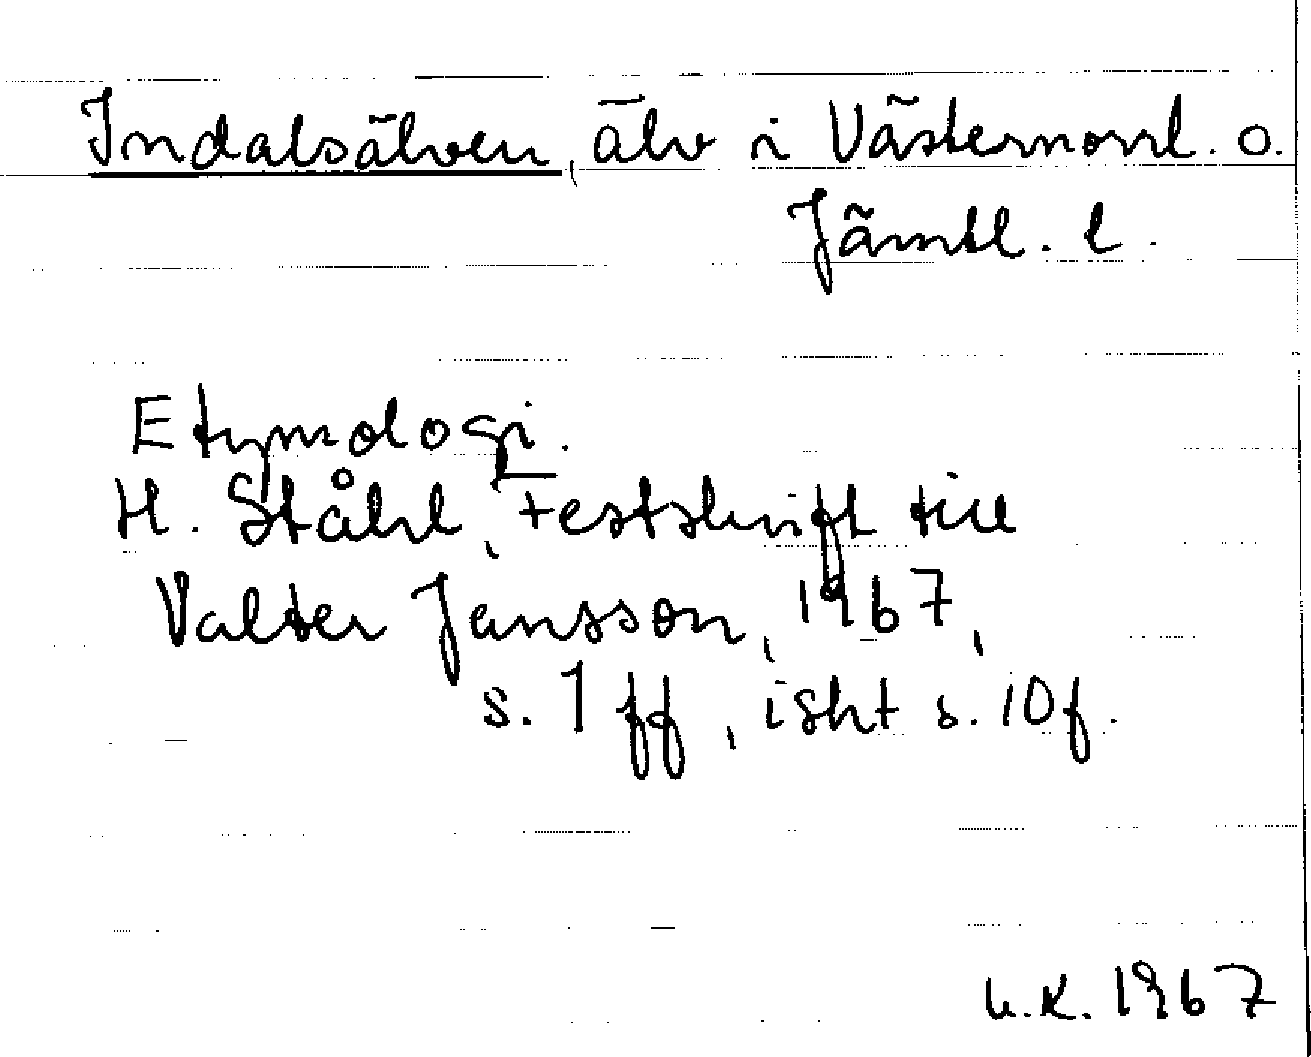 Indalsälven, älv i Västernorrl. o.
Jämtl. l.
Etymologi.
H. Ståhl, Festskrift till
Valter Jansson, 1967,
s. 1 ff, isht s. 10 f.
U.K. 1967